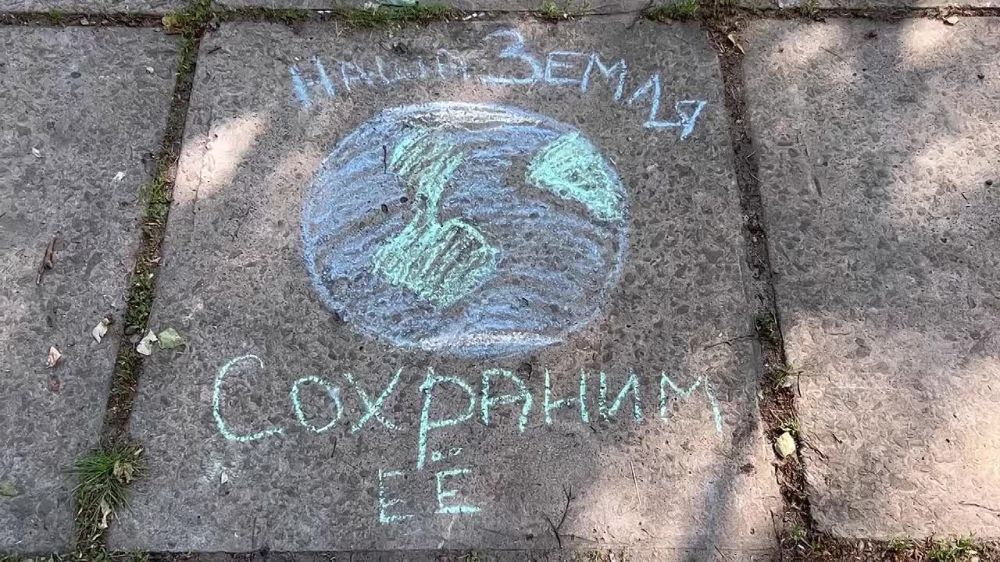 НАША ЗЕМЛЯ
СОХРАНИМ
ЕЁ